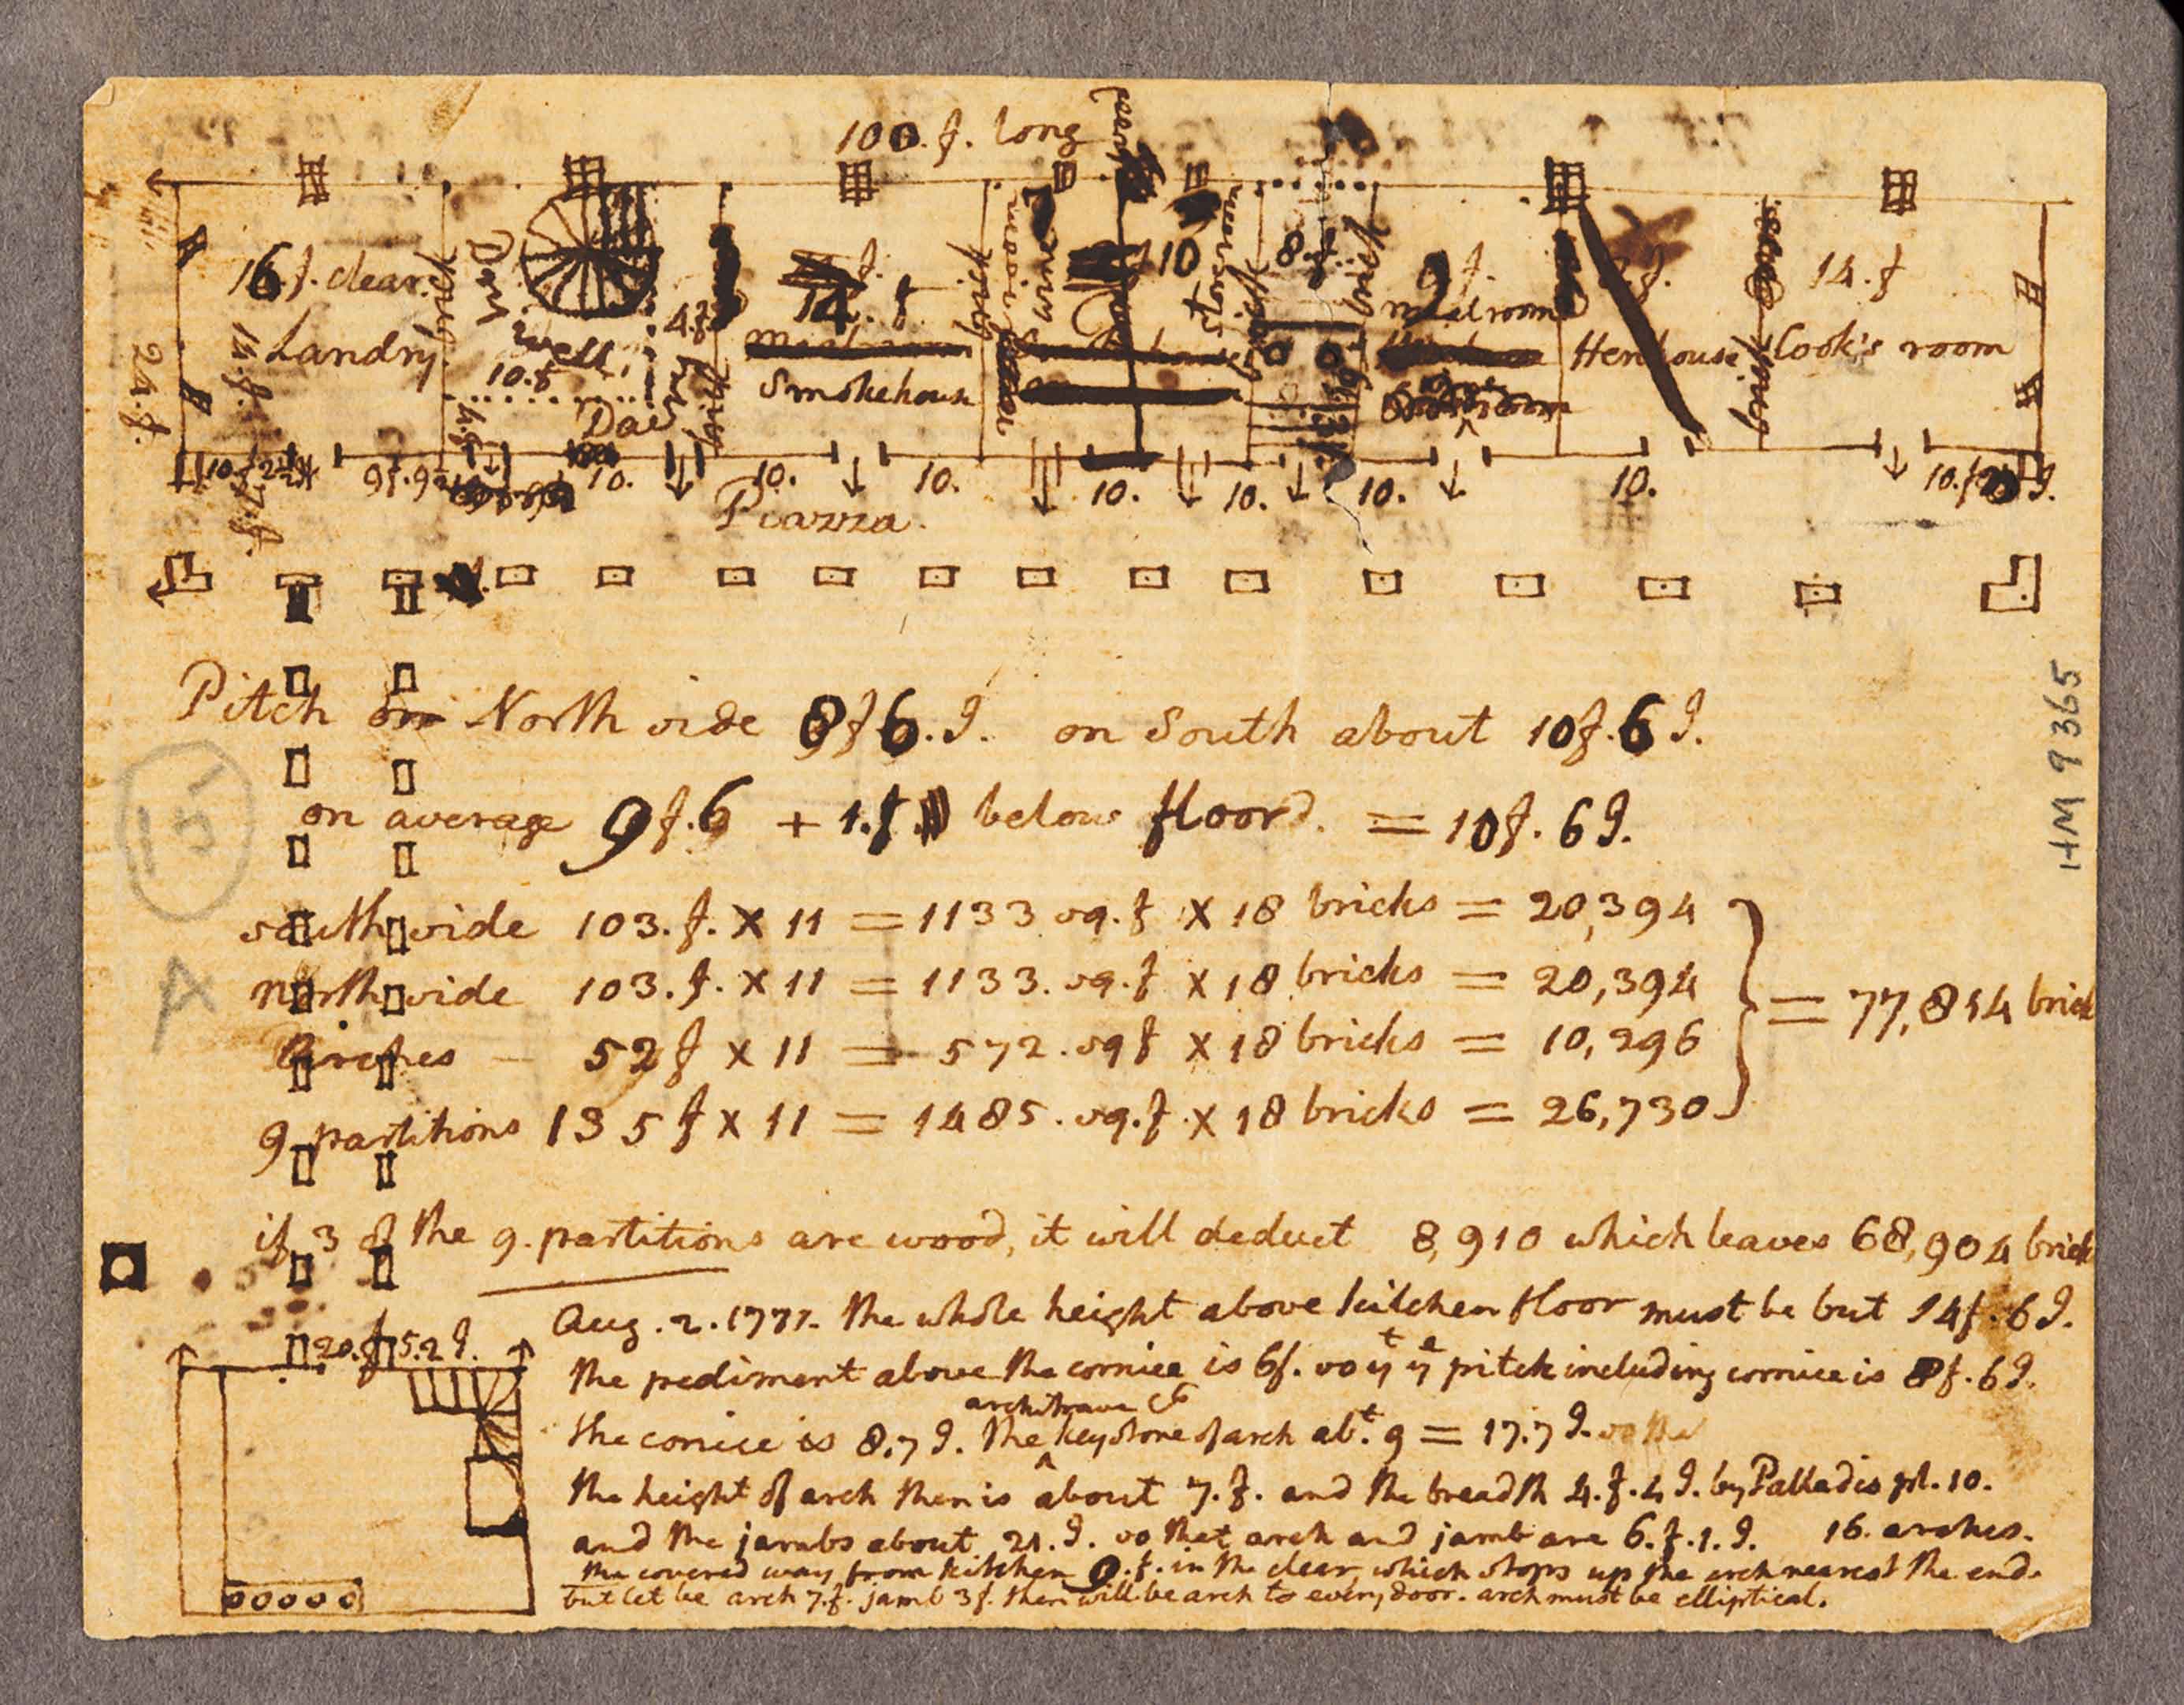 100. f. long
16 f. clear.
Landry.
brick
well
10. f
Dai
4. f
14. f
Smokehouse
brick
10
8. f.
brick
9 f.
mealroom
f.
Henhouse
14. f
Cook's room
24. f.
10. f
9f. 9
10.
10.
10.
10.
10.
10.
10.
10. f
Piazza.
Pitch on North side 8 f 6. I. on South about 10 f. 6 I.
on average 9 f. 6 + 1. f. below floor. = 10 f. 6 I.
south side 103. f. X 11 = 1133 sq. f X 18 bricks = 20,394
north side 103. f. X 11 = 1133. sq. f X 18 bricks = 20,394
Arches — 52 f X 11 = 572. sq f X 18 bricks = 10,296
9 partitions 135 f X 11 = 1485. sq. f. X 18 bricks = 26,730
= 77,814 brick
if 3 of the 9. partitions are wood, it will deduct 8,910 which leaves 68,904 brick
20. f 5.2 I.
Aug. 2. 1777. the whole height above kitchen floor must be but 14 f. 6 I.
the pediment above the cornice is 6f. so yt ye pitch including cornice is 8 f. 6 I.
the conice is 8.7 I. The architrave & keystone of arch abt. 9 = 17.7 I. so the
the height of arch then is about 7. f. and the breadth 4. f. 4 I. by Palladio pl. 10.
and the jambs about 21. I. so that arch and jamb are 6. f. 1. I. 16. arches.
the covered way from kitchen 9. f. in the clear, which stops up the arch nearest the end.
but let be arch 7. f. jamb 3 f. then will be arch to every door. arch must be elliptical.
HM 9365
15
A